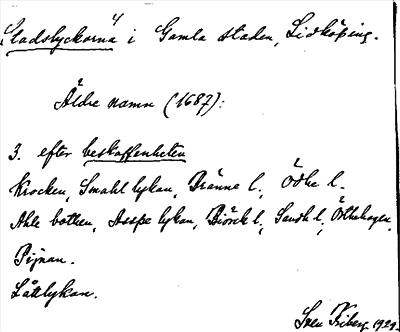 Stadslyckorna 4 i Gamla staden, Lidköping.
Äldre namn (1687):
3. efter beskaffenheten
Krocken, Smahl lykan, Dränne l., Ödhe l.
Ahle bothen, Asspe lykan, Biörck l., Sandh l.,
Pijnan.
Låttlykan.
Sven Friberg 1929.